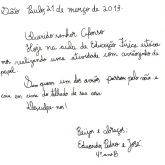 São Paulo, 21 de março de 2013.
Querido senhor Afonso
Hoje na aula de Educação Física estáva
mos realizando uma atividade com aviãozinho de
papel.
Bem quem um dos aviões passou pelo vão e
caiu em cima do telhado de sua casa.
Desculpa-nos!
Beijos e abraços:
Eduardo Pedro e José
4º ano B